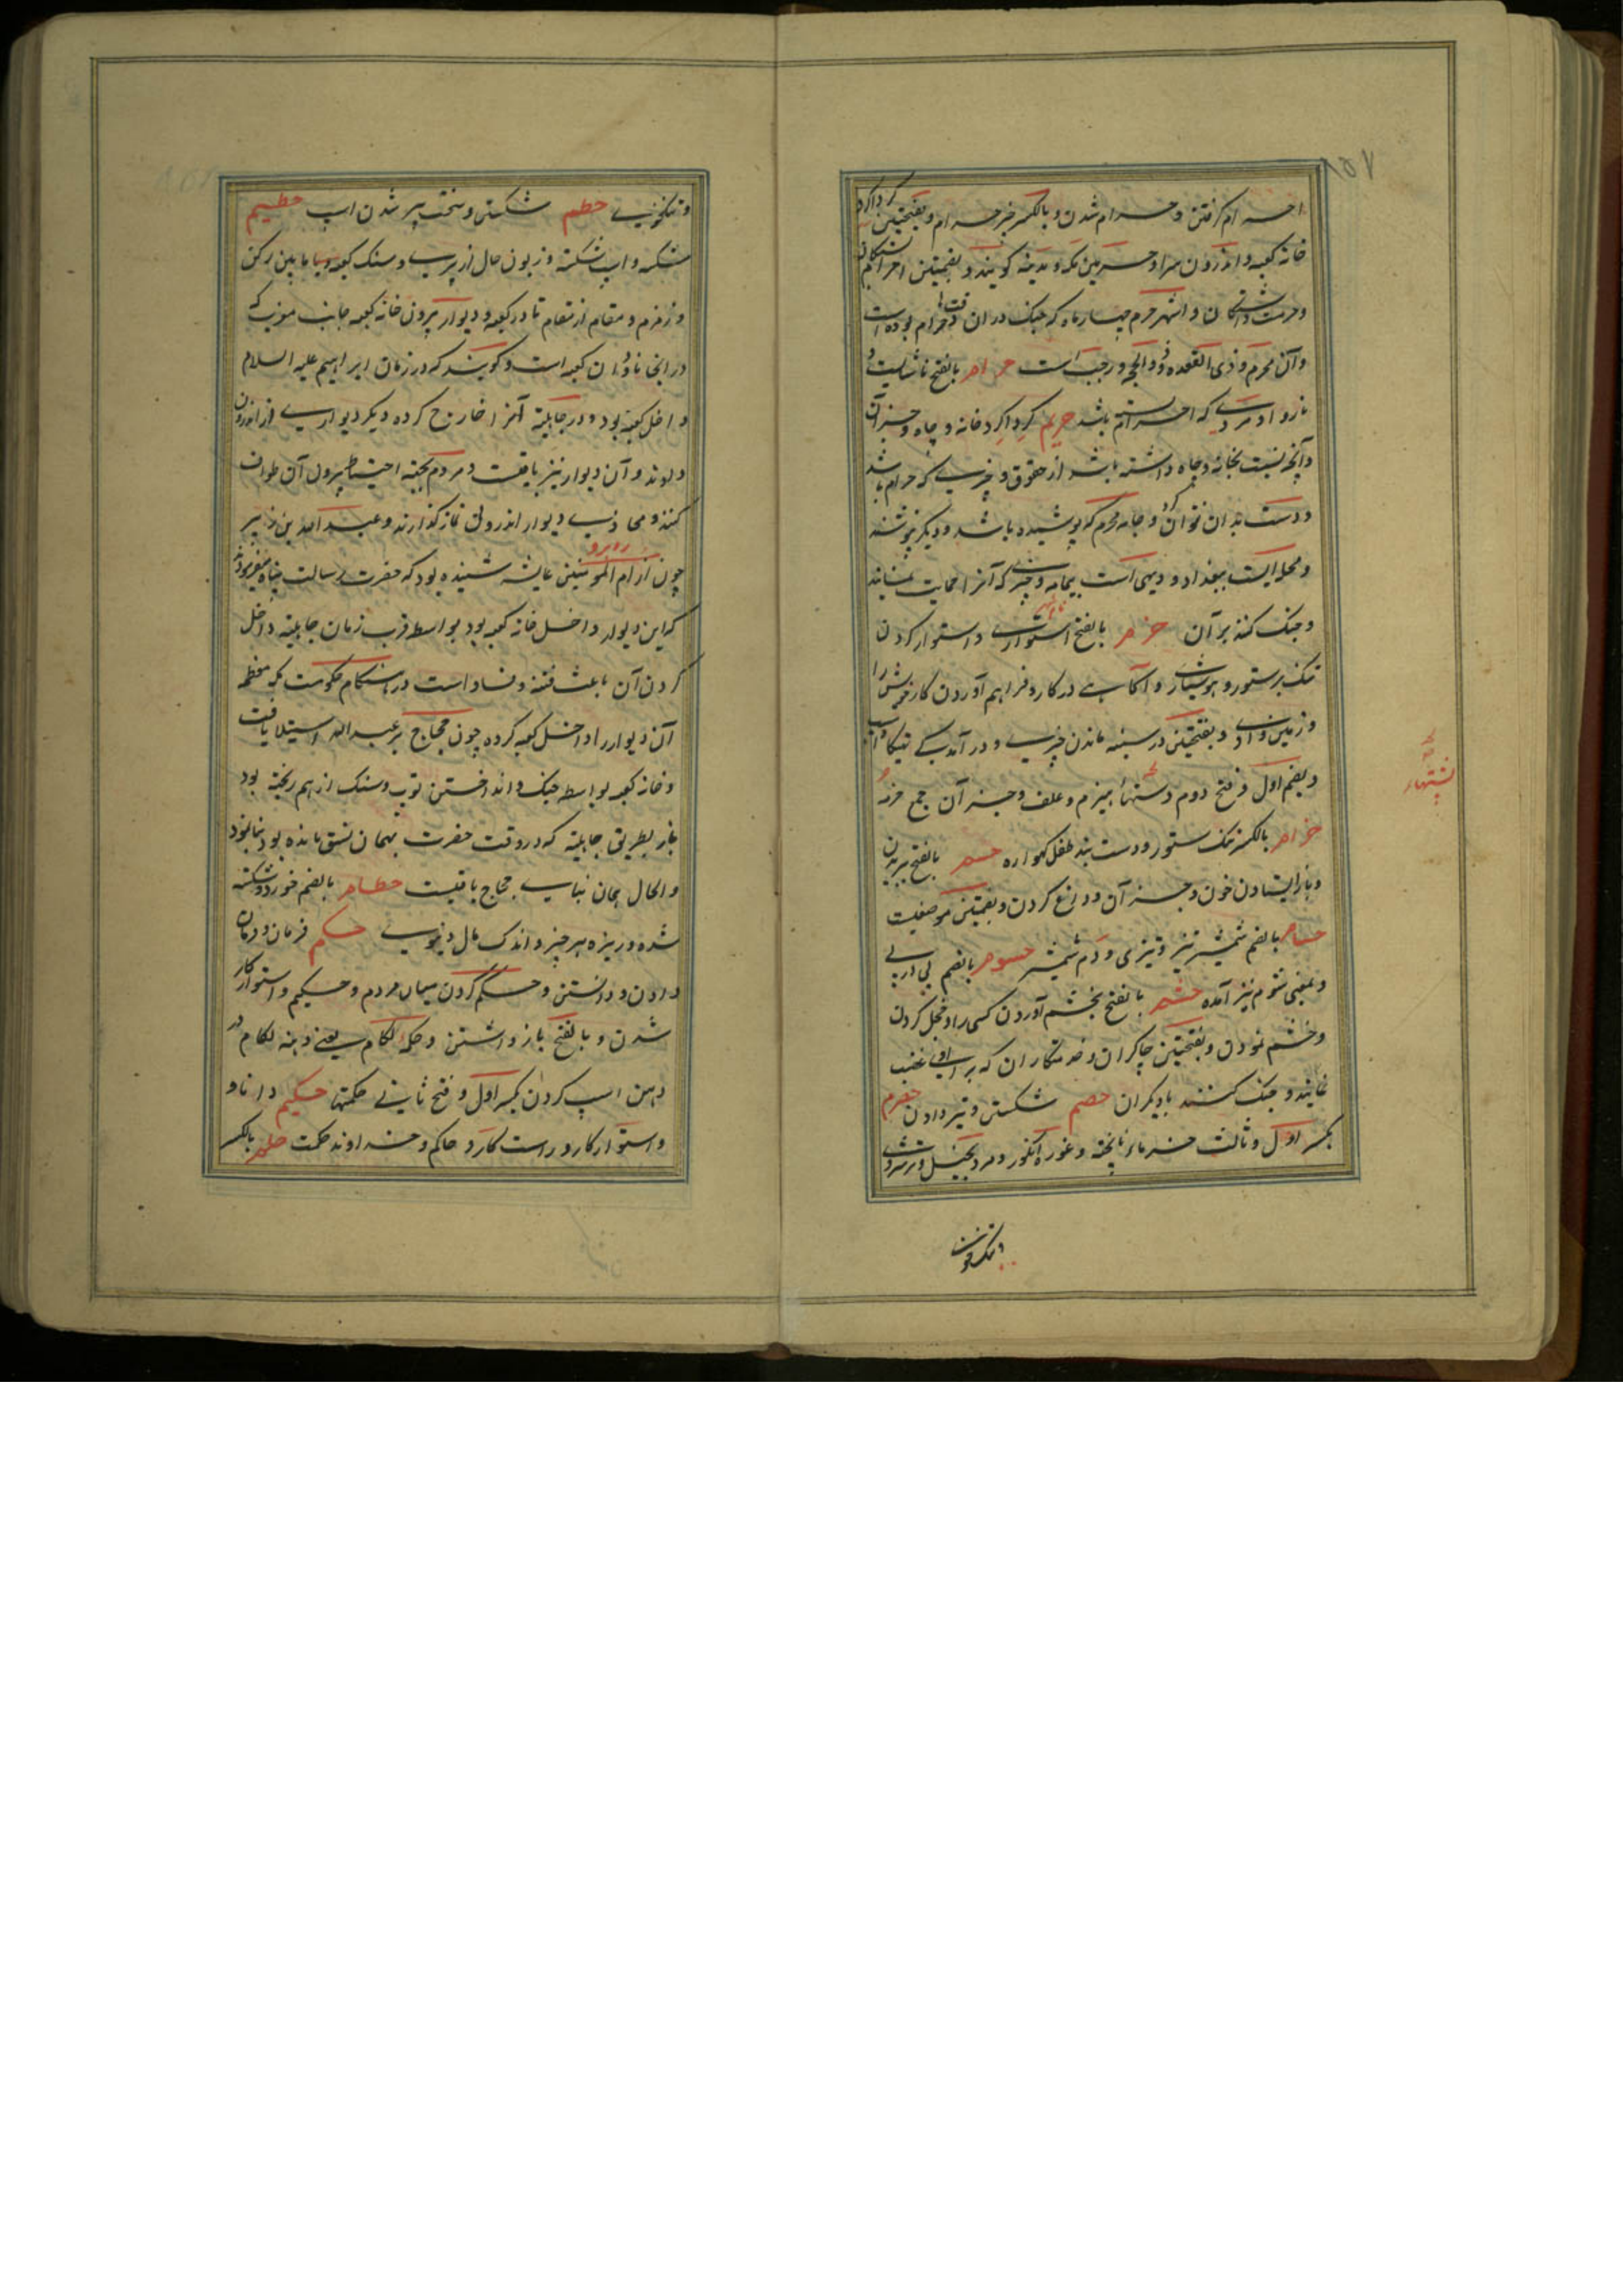 ۱۵۷
احرام گرفتن و حرام شدن و بالکسر خبر حرام و بفتحتین گرداگرد
خانه کعبه و اندرون سرا و حرمین مکه و مدینه گویند و بضمتین احرام
و حرمت داشتگان و اشهر حرم چهار ماه که جنگ دران وقتها حرام بوده است
و آن محرم و ذی القعده و ذو الحجه و رجب است حرام بالفتح ناشایست و
ناروا و مردے که احرام بسته باشد حریم گرداگرد خانه و چاه و جز آن
و آنچه نسبت بخانه و چاه داشته باشد از حقوق و چیزے که حرام باشد
و دست بدان نتوان کرد و جامه محرم که پوشیده باشد و دیگر نپوشند
و محله ایست ببغداد و دیهی است بیمامه و چیزے که آنرا حمایت نمایند
و جنگ کنند بر آن حزم بالفتح استوارے و استوار کردن
تنگ بر ستور و هوشیاری و آگاہے در کار و فراهم آوردن کار خویش را
و زمین و بفتحتین در سینه ماندن چیزے و در آمدگے تهیگاه اسب
و بضم اول و فتح دوم دستهای هیزم و علف و جز آن جمع حزمه
پشتهاء
حزام بالکسر تنگ ستور و دست بند طفل گهواره حسم بالفتح بریدن
و باز ایستادن خون و جز آن و داغ کردن و بضمتین موضعیست
حسام بالضم شمشیر تیز و تیزی و دم شمشیر حسوم بالضم پی در پے
و بمعنی شوم نیز آمده حشم بالفتح بخشم آوردن کسی را و خجل کردن
و خشم نمودن و بفتحتین چاکران و خدمتگاران که برای او غضب
نمایند و جنگ کنند با دیگران حصم شکستن و تیز دادن حصرم
بکسر اول و ثالث خرماء ناپخته و غوره انگور و مرد بخیل و ترشروئے
و تنگخوئے حطم شکستن و سخت پیر شدن اسپ حطیم
شکسته و اسپ شکسته و زبون حال از پیرے و سنگ کعبه و یا ما بین رکن
و زمزم و مقام از مقام تا در کعبه و دیوار بیرون خانه کعبه جانب مغرب که
در آنجا ناودان کعبه است و گویند که در زمان ابراهیم علیه السلام
داخل کعبه بود و در جاهلیة آنرا خارج کرده دیگر دیوارے از اندرون
و آن دیوار نیز باقیست و مردم بجهة احتیاط بیرون آن طواف
کنند و محاذے دیوار اندرونی نماز گذارند و عبد الله بن زبیر
روبرو
چون از ام المومنین عایشه شنیده بود که حضرت رسالت پناه میفرمودند
که این دیوار داخل خانه کعبه بود بواسطه قرب زمان جاهلیة داخل
کردن آن باعث فتنه و فساد است در هنگام حکومت مکه معظمه
آن دیوار را داخل کعبه کرده چون حجاج بر عبد الله استیلا یافت
و خانه کعبه بواسطه جنگ و انداختن توپ و سنگ از هم ریخته بود
باز بطریق جاهلیة که در وقت حضرت بهمان نسق مانده بود بنا نمود
و الحال همان بنای حجاج باقیست حطام بالضم خورد و شکسته
شده و ریزه هر چیز و اندک مال دنیوے حکم فرمان و فرمان
دادن و دانستن و حکم کردن میان مردم و حکیم و استوار کار
شدن و بالفتح باز داشتن و حکمه لگام یعنے دهنه لگام در
دهن اسپ کردن بکسر اول و فتح ثانے حکمتها حکیم دانا و
و استوار کار و راست کار و حاکم و خداوند حکمت حلم بالکسر